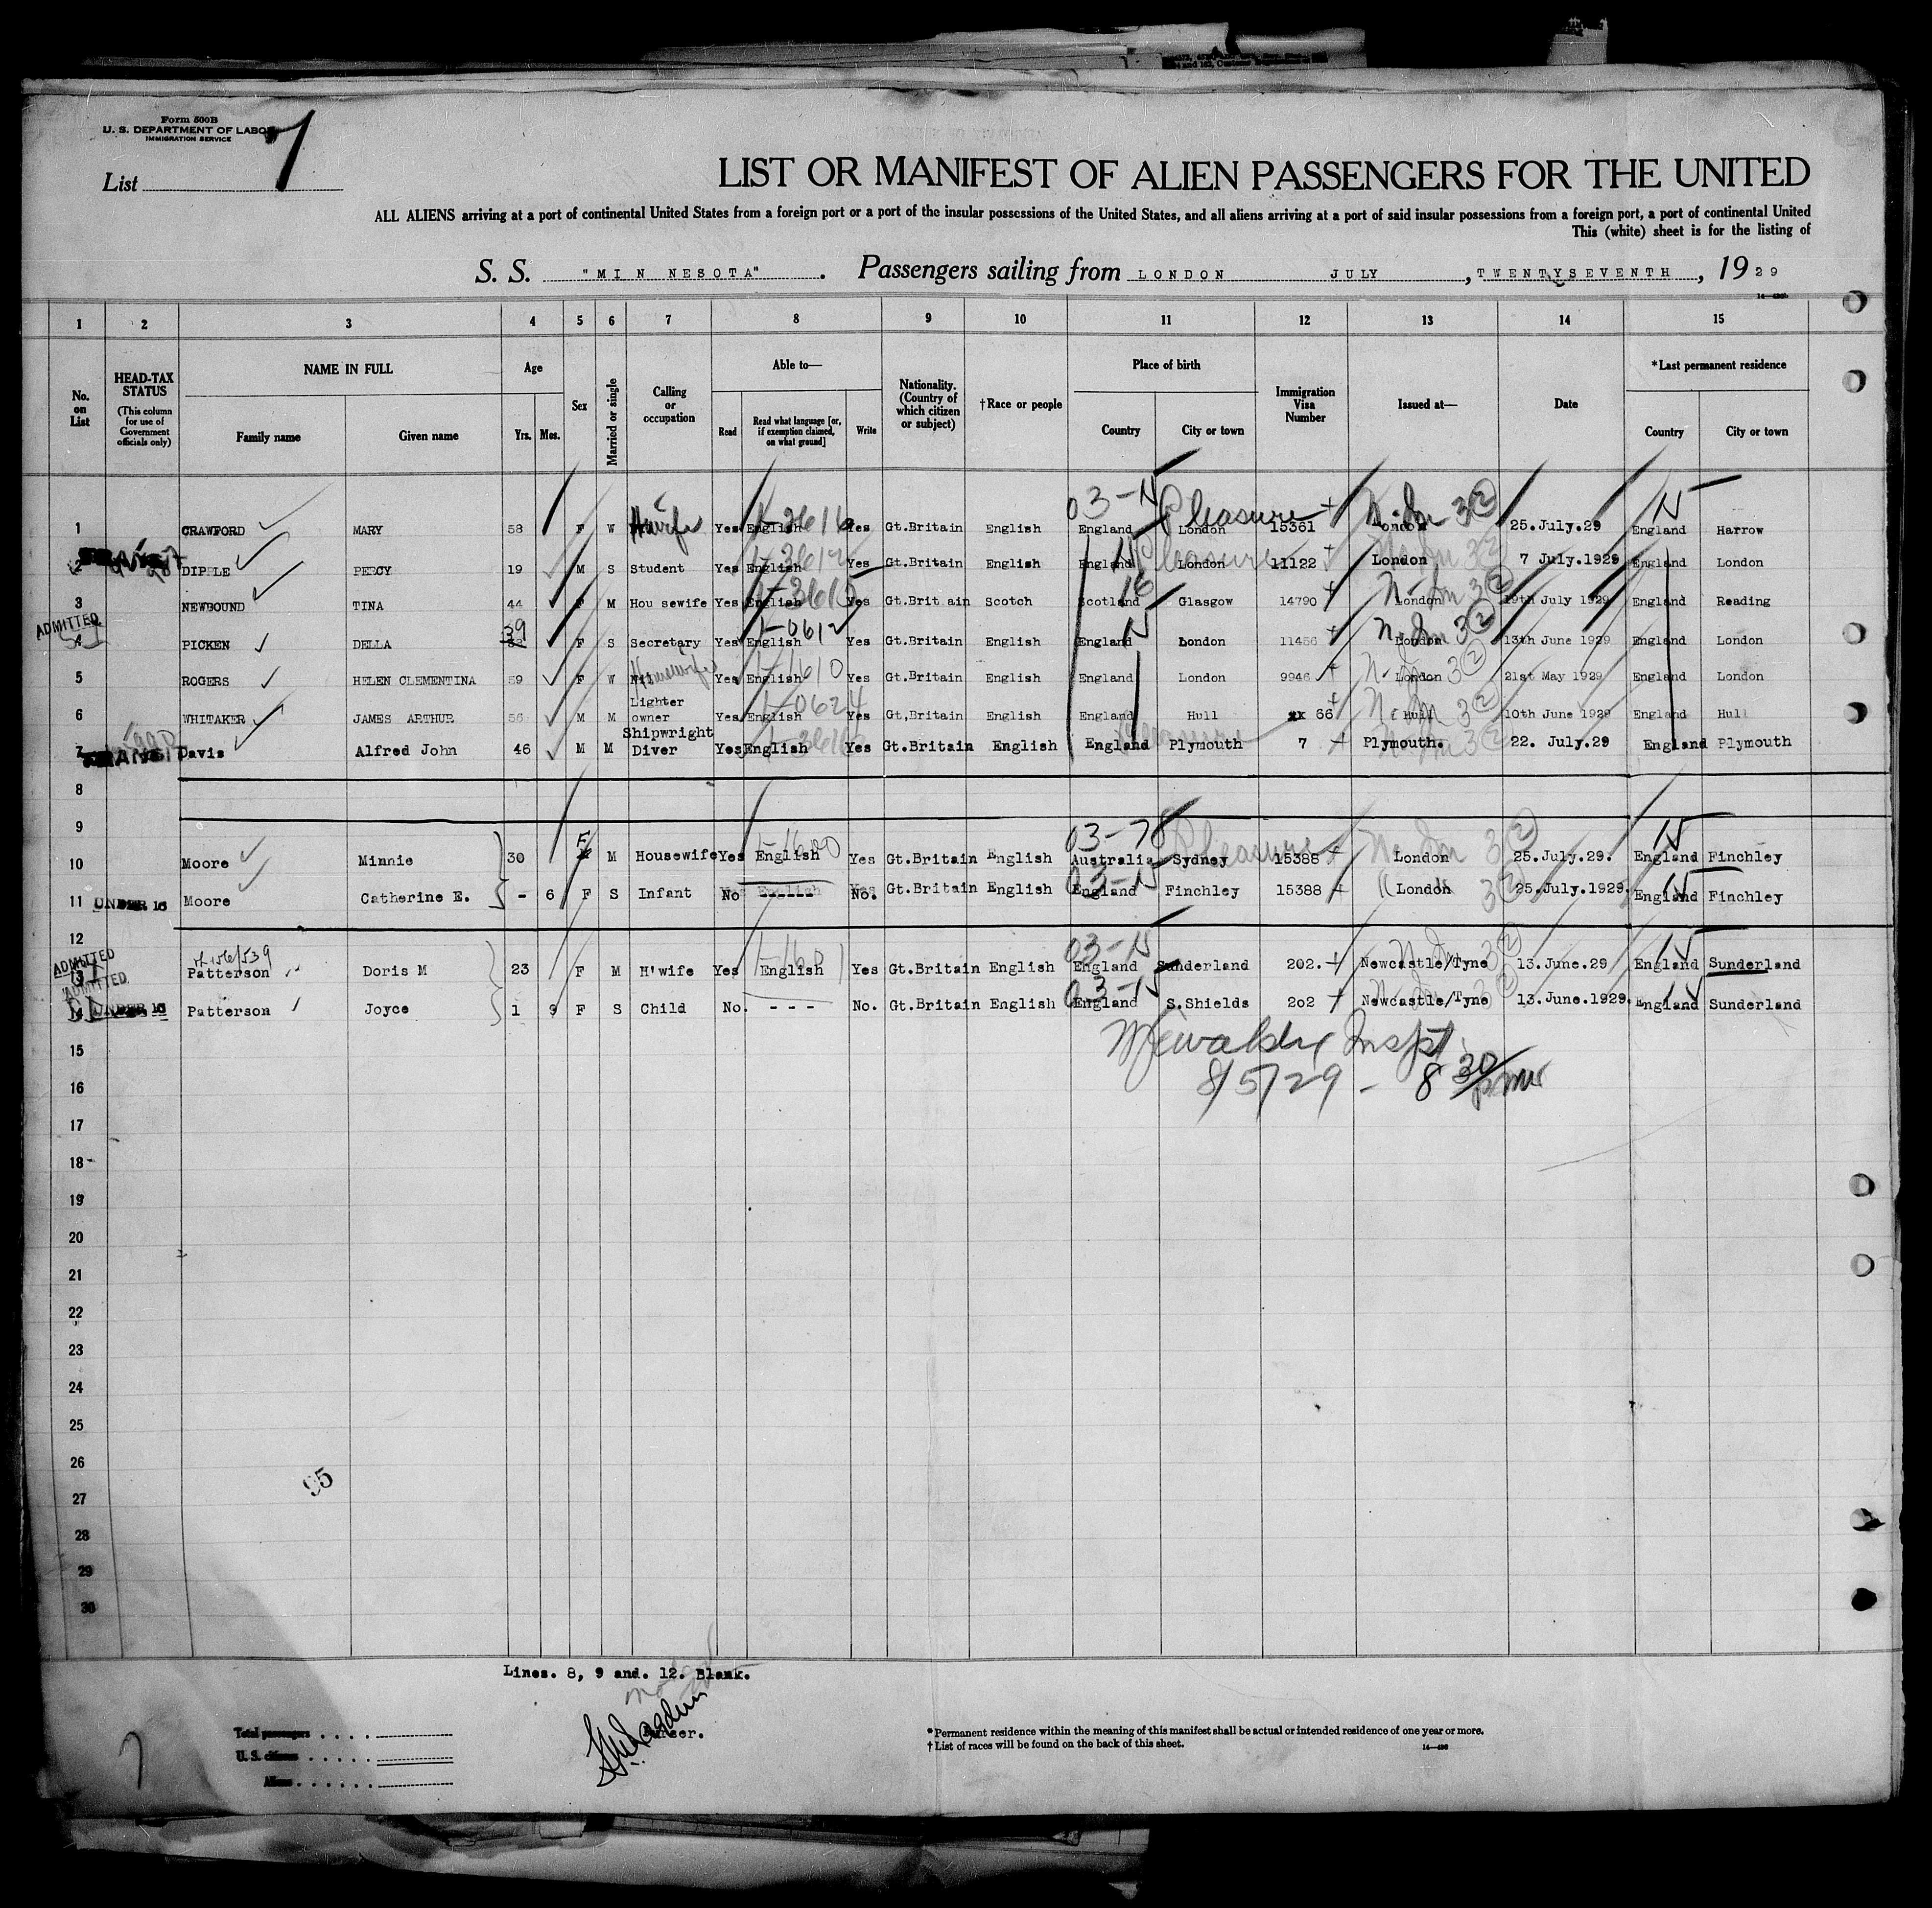 Form 500B
U. S. DEPARTMENT OF LABOR
IMMIGRATION SERVICE
List 7
LIST OR MANIFEST OF ALIEN PASSENGERS FOR THE UNITED
ALL ALIENS arriving at a port of continental United States from a foreign port or a port of the insular possessions of the United States, and all aliens arriving at a port of said insular possessions from a foreign port, a port of continental United
This (white) sheet is for the listing of
S. S. "MINNESOTA". Passengers sailing from LONDON JULY, TWENTYSEVENTH, 1929
1 2 3 4 5 6 7 8 9 10 11 12 13 14 15
No. on List
HEAD-TAX STATUS (This column for use of Government officials only)
NAME IN FULL Family name Given name
Age Yrs. Mos.
Sex
Married or single
Calling or occupation
Able to— Read Read what language [or, if exemption claimed, on what ground] Write
Nationality. (Country of which citizen or subject)
†Race or people
Place of birth Country City or town
Immigration Visa Number
Issued at—
Date
*Last permanent residence Country City or town
03-15 Pleasure
1 CRAWFORD MARY 58 F W H'wife Yes English Yes Gt.Britain English England London 15361 London 25.July.29 England Harrow
2 DIPPLE PERCY 19 M S Student Yes English Yes Gt.Britain English England London 11122 London 7 July.1929 England London
3 NEWBOUND TINA 44 F M Housewife Yes English Yes Gt.Britain Scotch Scotland Glasgow 14790 London 19th July 1929 England Reading
ADMITTED
4 PICKEN DELLA 39 F S Secretary Yes English Yes Gt.Britain English England London 11456 London 13th June 1929 England London
5 ROGERS HELEN CLEMENTINA 59 F W Housewife Yes English Yes Gt.Britain English England London 9946 London 21st May 1929 England London
6 WHITAKER JAMES ARTHUR 56 M M Lighter owner Yes English Yes Gt,Britain English England Hull 66 Hull 10th June 1929 England Hull
7 TRANSIT Davis Alfred John 46 M M Shipwright Diver Yes English Yes Gt.Britain English England Plymouth 7 Plymouth. 22. July.29 England Plymouth
8
9
03-78 Pleasure
10 Moore Minnie 30 F M Housewife Yes English Yes Gt.Britain English Australia Sydney 15388 London 25.July.29. England Finchley
11 UNDER 16 Moore Catherine E. - 6 F S Infant No English No. Gt.Britain English England Finchley 15388 London 25.July.1929. England Finchley
12
ADMITTED 03-15
13 Patterson Doris M 23 F M H'wife Yes English Yes Gt.Britain English England Sunderland 202. Newcastle/Tyne 13.June.29 England Sunderland
ADMITTED 03-15
14 UNDER 16 Patterson Joyce 1 9 F S Child No. --- No. Gt.Britain English England S.Shields 202 Newcastle/Tyne 13.June.1929. England Sunderland
15
Inspt
16
8/5/29 - 8 30 pm
17
18
19
20
21
22
23
24
25
26
95
27
28
29
30
Lines. 8, 9 and. 12. Blank.
Total passengers
U. S. citizens
Aliens
7
*Permanent residence within the meaning of this manifest shall be actual or intended residence of one year or more.
†List of races will be found on the back of this sheet.